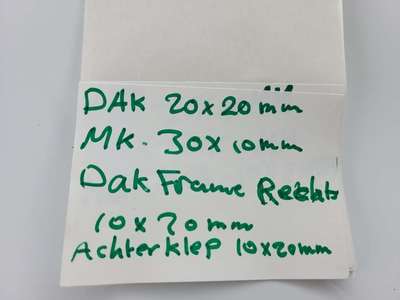 DAK 20x20mm
MK. 30x10mm
Dak Frame Rechts
10x20mm
Achterklep 10x20mm